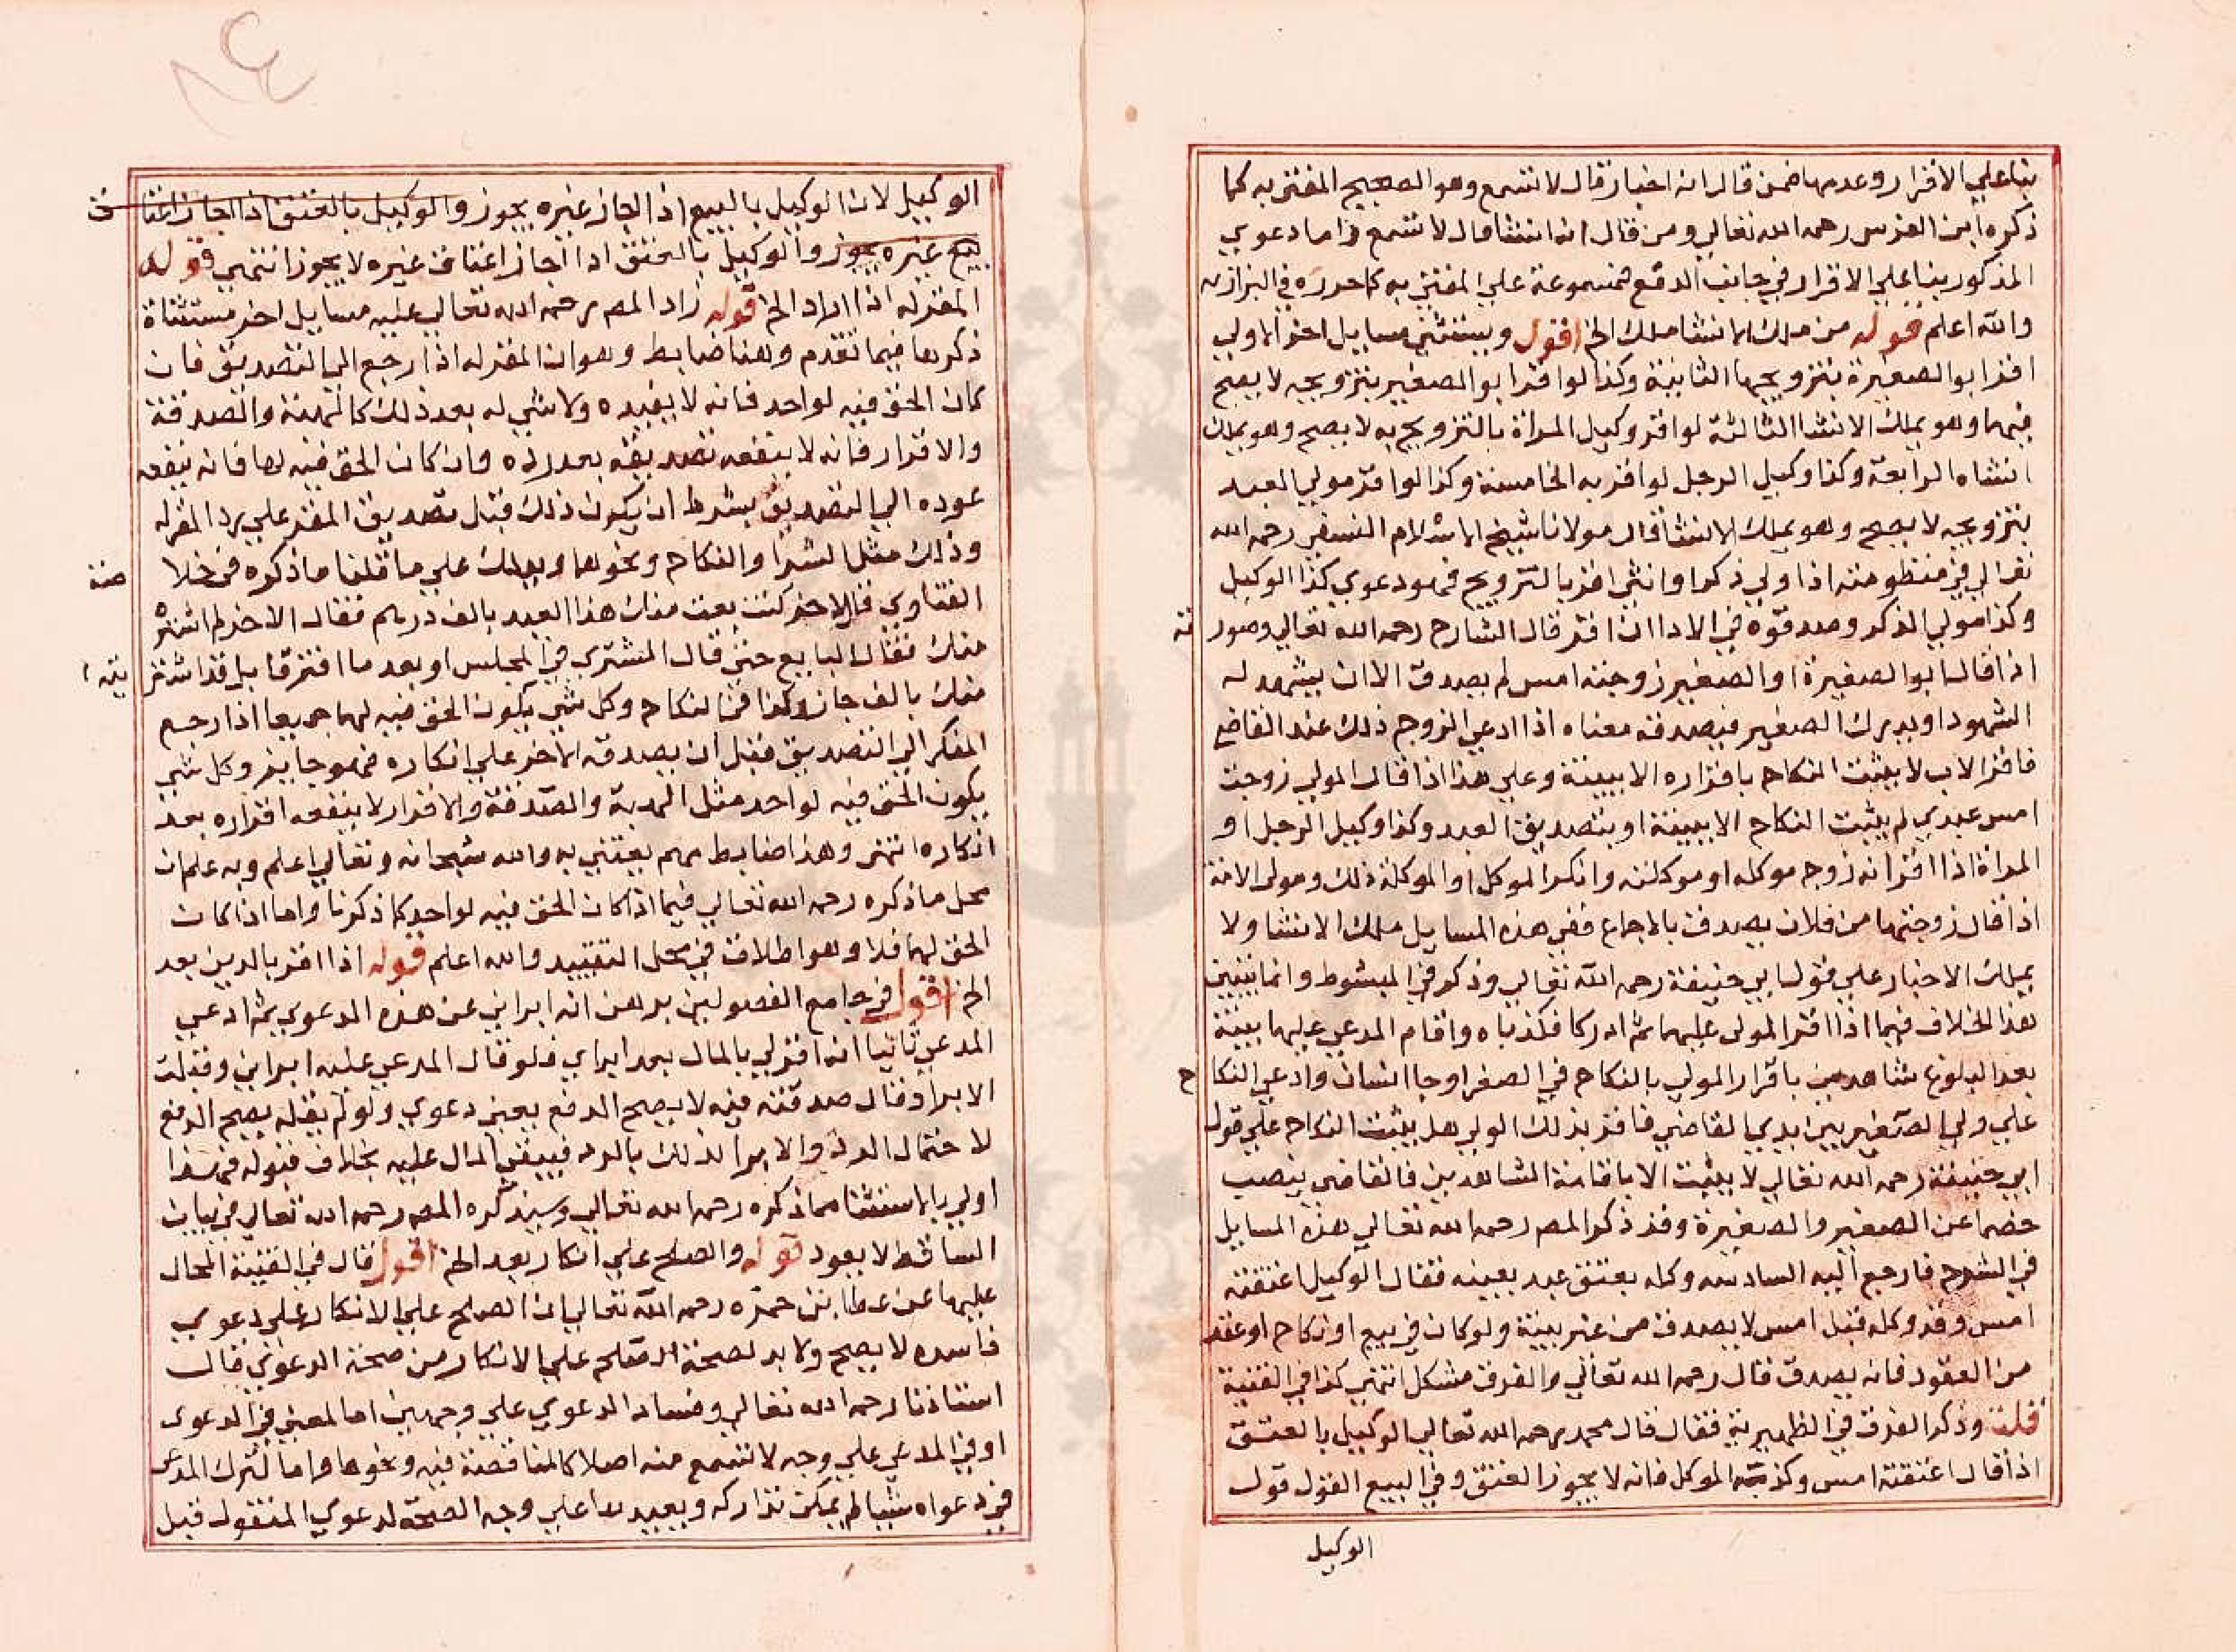 بناء علي الاقرار وعدمها فمن قال انه اخبار قال لا تسمع وهو الصحيح المفتي به كما
ذكره ابن الغرس رحمه الله تعالي ومن قال انه انشا قال لا تسمع واما دعوي
المذكور بنا علي الاقرار في جانب الدفع فمسموعة علي المفتي به كما حرره في البزازيه
والله اعلم قوله من ملك الانشا ملك الخ اقول ويستثني مسايل اخر الاولي
اقر ابو الصغيرة بتزويجها الثانية وكذا لو اقر ابو الصغير بتزويجه لا يصح
فيهما وهو يملك الانشا الثالثة لو اقر وكيل المراة بالتزويج به لا يصح وهو يملك
انشاه الرابعة وكذا وكيل الرجل لو اقر به الخامسة وكذا لو اقر مولي العبد
بتزويجه لا يصح وهو يملك الانشا قال مولانا شيخ الاسلام النسفي رحمه الله
تعالي في منظومته اذا ولي ذكر او انثي اقر بالتزويج فهو دعوي كذا الوكيل
وكذا مولي الذكر وصدقوه في الاداان اقر قال الشارح رحمه الله تعالي وصور ته
اذا قال ابو الصغيرة او الصغير زوجته امس لم يصدق الا ان يشهد له
الشهود او يدرك الصغير فيصدقه معناه اذا ادعي الزوج ذلك عند القاضي
فاقر الاب لا يثبت النكاح باقراره الا ببينة وعلي هذا اذا قال المولي زوجت
امس عبدي لم يثبت النكاح الا ببينة او بتصديق العبد وكذا وكيل الرجل او
المراة اذا اقر انه زوج موكله او موكلته وانكر الموكل او الموكلة ذلك ومولى الامة
اذا قال زوجتها من فلان يصدق بالاجماع ففي هذه المسايل ملك الانشا ولا
يملك الاخبار علي قول ابي حنيفة رحمه الله تعالي وذكر في المبسوط وانما يتبين
هذا الخلاف فيما اذا اقر المولى عليهما ثم ادركا فكذباه واقام المدعي عليهما بينة
بعد البلوغ شاهدين باقرار المولي بالنكاح في الصغر او جا انسان وادعي النكا ح
علي ولي الصغيرين بين ايدي القاضي فاقر بذلك الولي هل يثبت النكاح علي قول
ابي حنيفة رحمه الله تعالي لا يثبت الا باقامة الشاهدين فالقاضي ينصب
خصما عن الصغير والصغيرة وقد ذكر المص رحمه الله تعالي هذه المسايل
في الشرح فارجع اليه السادسة وكله بعتق عبد بعينه فقال الوكيل اعتقته
امس وقد وكله قبل امس لا يصدق من غير بينة ولو كان في بيع او نكاح او عقد
من العقود فانه يصدق قال رحمه الله تعالي والفرق مشكل انتهي كذا في القنية
قلت وذكر الفرق في الظهيرية فقال قال محمد رحمه الله تعالي الوكيل بالعتق
اذا قال اعتقته امس وكذبه الموكل فانه لا يجوز العتق وفي البيع القول قول
الوكيل
الوكيل لان الوكيل بالبيع اذا اجاز غيره يجوز والوكيل بالعتق اذا اجاز اعتا ق
بيع غيره يجوز والوكيل بالعتق اذا اجاز اعتاق غيره لا يجوز انتهي قوله
المقر له اذا اراد الخ قوله زاد المص رحمه الله تعالي عليه مسايل اخر مستثناة
ذكرها فيما تقدم وهنا ضابط وهو ان المقر له اذا رجع الي التصديق فان
كان الحق فيه لواحد فانه لا يفيده ولا شي له بعد ذلك كالهبة والصدقة
والاقرار فانه لا ينفعه تصديقه بعد رده وان كان الحق فيه لهما فانه ينفعه
عوده الي التصديق بشرط ان يكون ذلك قبل تصديق المقر علي رد المقر له
وذلك مثل الشرا والنكاح ونحوهما ويدلك علي ما قلنا ما ذكره في خلا صة
الفتاوي قال لاخر كنت بعت منك هذا العبد بالف درهم فقال الاخر لم اشتره
منك فقال البايع حتي قال المشتري في المجلس او بعد ما افترقا بل قد اشتر يته
منك بالف جاز وكذا في النكاح وكل شي يكون الحق فيه لهما جميعا اذا رجع
المنكر الي التصديق قبل ان يصدقه الاخر علي انكاره فهو جايز وكل شي
يكون الحق فيه لواحد مثل الهبة والصدقة والاقرار لا ينفعه اقراره بعد
انكاره انتهى وهذا ضابط مهم يعتني به والله سبحانه وتعالي اعلم وبه علم ان
محل ما ذكره رحمه الله تعالي فيما اذا كان الحق فيه لواحد كما ذكرنا واما اذا كان
الحق لهما فلا وهو اطلاق في محل التقييد والله اعلم قوله اذا اقر بالدين بعد
الخ اقول في جامع الفصولين برهن انه ابراني عن هذه الدعوي ثم ادعي
المدعي ثانيا انه اقر لي بالمال بعد ابراي فلو قال المدعي عليه ابراني وقبلت
الابرا وقال صدقته فيه لا يصح الدفع يعني دعوي ولو لم يقله يصح الدفع
لاحتمال الرد والابرا لذلك بالرد فيبقي المال عليه بخلاف قبوله فهذا
اولي بالاستثنا مما ذكره رحمه الله تعالي وسيذكره المص رحمه الله تعالي في بيان
الساقط لا يعود قوله والصلح علي انكار بعد الخ اقول قال في القنية المحال
عليها عن عطا بن حمزه رحمه الله تعالي ان الصلح علي الانكار علي دعوي
فاسده لا يصح ولا بد لصحة الصلح علي الانكار من صحة الدعوي قال
استاذنا رحمه الله تعالي وفساد الدعوي علي وجهين اما لمعني في الدعوى
او في المدعي علي وجه لا تسمع منه اصلا كالمناقضة فيه ونحوها واما لترك المدعي
في دعواه شيا لم يمكن تداركه ويعيدها علي وجه الصحة لدعوي المنقول قبل